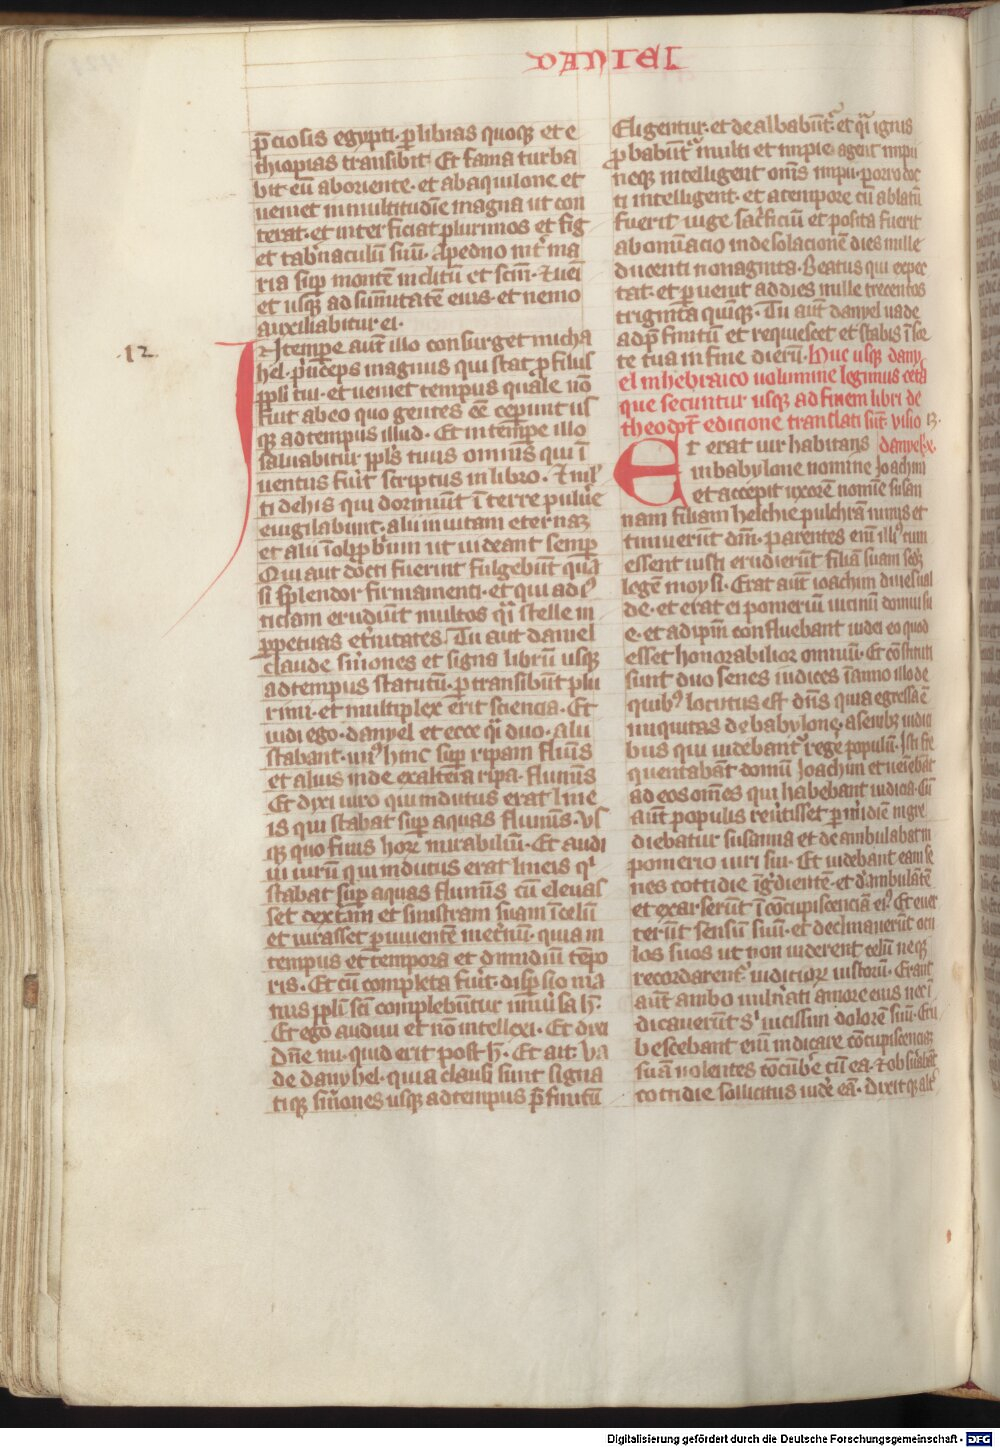 DANIEL
p̄ciosis egypti. ꝑ libias quoqꝫ et e
thiopias transibit Et fama turba
bit eū ab oriente. et ab aquilone et
ueniet in multitudīe magna ut con
terat. et interficiat plurimos et fig
et tab͛naculū suū. Apedno int͛ ma
ria suꝑ montē inclitū et sc̄m. ⁊ uēi
et usqꝫ ad sūmitatē eius. et nemo
auxiliabitur ei.
12
In tempe aut̄ illo consurget micha
hel. p͛nceps magnus qui stat ꝓ filiis
ppl̄i tui. et ueniet tempus quale nō
fuit ab eo quo gentes eē ceperunt us
qꝫ ad tempus illud. Et in tempe illo
saluabitur ppl̄s tuus omnis qui ī
uentus fu͛it scriptus in libro. ⁊ ml̄
ti de his qui dormiūt ī terre puluͤe
euigilabunt. alii in uitam eternaꝫ
et alii ī obꝓbrium ut uideant semꝑ
Qui aut docti fuerint fulgebūt qua
si splendor firmamenti. et qui ad iꝰ
ticiam erudiūt multos qͣi stelle in
ꝑpetuas et͛nitates. Tu aut daniel
claude sm̄ones et signa librū usqꝫ
ad tempus statutū. ꝑtransibūt plu
rimi. et multiplex erit sciencia. Et
uidi ego. danyel et ecce qͣi duo. alii
stabant. unꝰ hinc suꝑ ripam flum̄s
et alius inde ex altera ripa. flumīs
Et dixi uiro qui indutus erat line
is qui stabat suꝑ aquas flumīs. Us
qꝫ quo finis horꝫ mirabiliū. Et audi
ui uirū qui indutus erat lineis qͥ
stabat suꝑ aquas flumīs cū eleuas
set dextam et sinistram suam ī celū
et iurasset ꝑ uiuentē in et͛nū. quia in
tempus et tempora et dimidiū tēpo
ris. Et cū completa fu͛it. disꝑsio ma
nus ppl̄i sc̄i complebūtur uniu͛sa h̄.
Et ego audiui et nō intellexi. Et dixi
dn̄e mi. quid erit post h̄. Et ait. Va
de danyhel. quia clausi sunt signa
tiqꝫ sm̄ones usqꝫ ad tempus p̄finitū
Eligentur. et dealbabūt͛. et qͣi ignis
ꝓbabūt͛ multi et impie agent impii
neqꝫ intelligent om̄s impii. porro doc
ti intelligent. et a tempore cū ablatū
fuerit iuge sac͛ficiū et posita fuerit
abominacio in desolacionē dies mille
ducenti nonaginta. Beatus qui expec
tat. et ꝑuenit ad dies mille trecentos
triginta quinqꝫ. Tu aut̄ danyel uade
ad p̄finitū et requiescet et stabis ī sor
te tua in fine dierū. Huc usqꝫ dany
el in hebraico uolumine legimus ceta
que secuntur usqꝫ ad finem libri de
theodot̄ edicione translati sūt. visio 13.
Et erat uir habitans danyel͛ x.
in babylone nomine Joachim
et accepit uxorē nomīe susan
nam filiam helchie pulchrā nimis et
timuerūt dm̄. parentes eni͛ illiꝰ cum
essent iusti erudierūt filiā suam sᵉcꝫ
legē moysi. Erat aūt ioachim diues ual
de. et erat ei pomeriū uicinū domui su
e. et ad ipm̄ confluebant iudei eo quod
esset honorabilior omniū. Et cōstituti
sunt duo senes iudices ī anno illo de
quibꝰ locutus est dn̄s quia egressa ē
iniquitas de babylone. a senibꝫ iudici
bus qui uidebant͛ rege populū. Isti fre
quentabāt domū Joachim et ueniebāt
ad eos om̄es qui habebant iudicia. Cū
aūt populis reuͥtisset ꝑ m͛idiem ingre
diebatur susanna et deambulabat in
pomerio uiri sui. Et uidebant eam se
nes cottidie īg͛dientē. et d͛ambulātē
et exarserūt ī cōcupiscenciā eiꝰ. Et euer
terūt sensū suū. et declinauerūt ocu
los suos ut non uiderent celū neqꝫ
recordarent͛ iudiciorꝫ iustorū. Erant
aūt ambo uuln͛ati amore eius nec ī
dicauerūt sͥ uicissim dolorē suū. Eru
bescebant eni͛ indicare cōcupiscenciaꝫ
suā uolentes cōcūb͛e cū ea. ⁊ obs͛uabāt
cottidie sollicitus uid͛e eā. dixitqꝫ alt͛
Digitalisierung gefördert durch die Deutsche Forschungsgemeinschaft - DFG